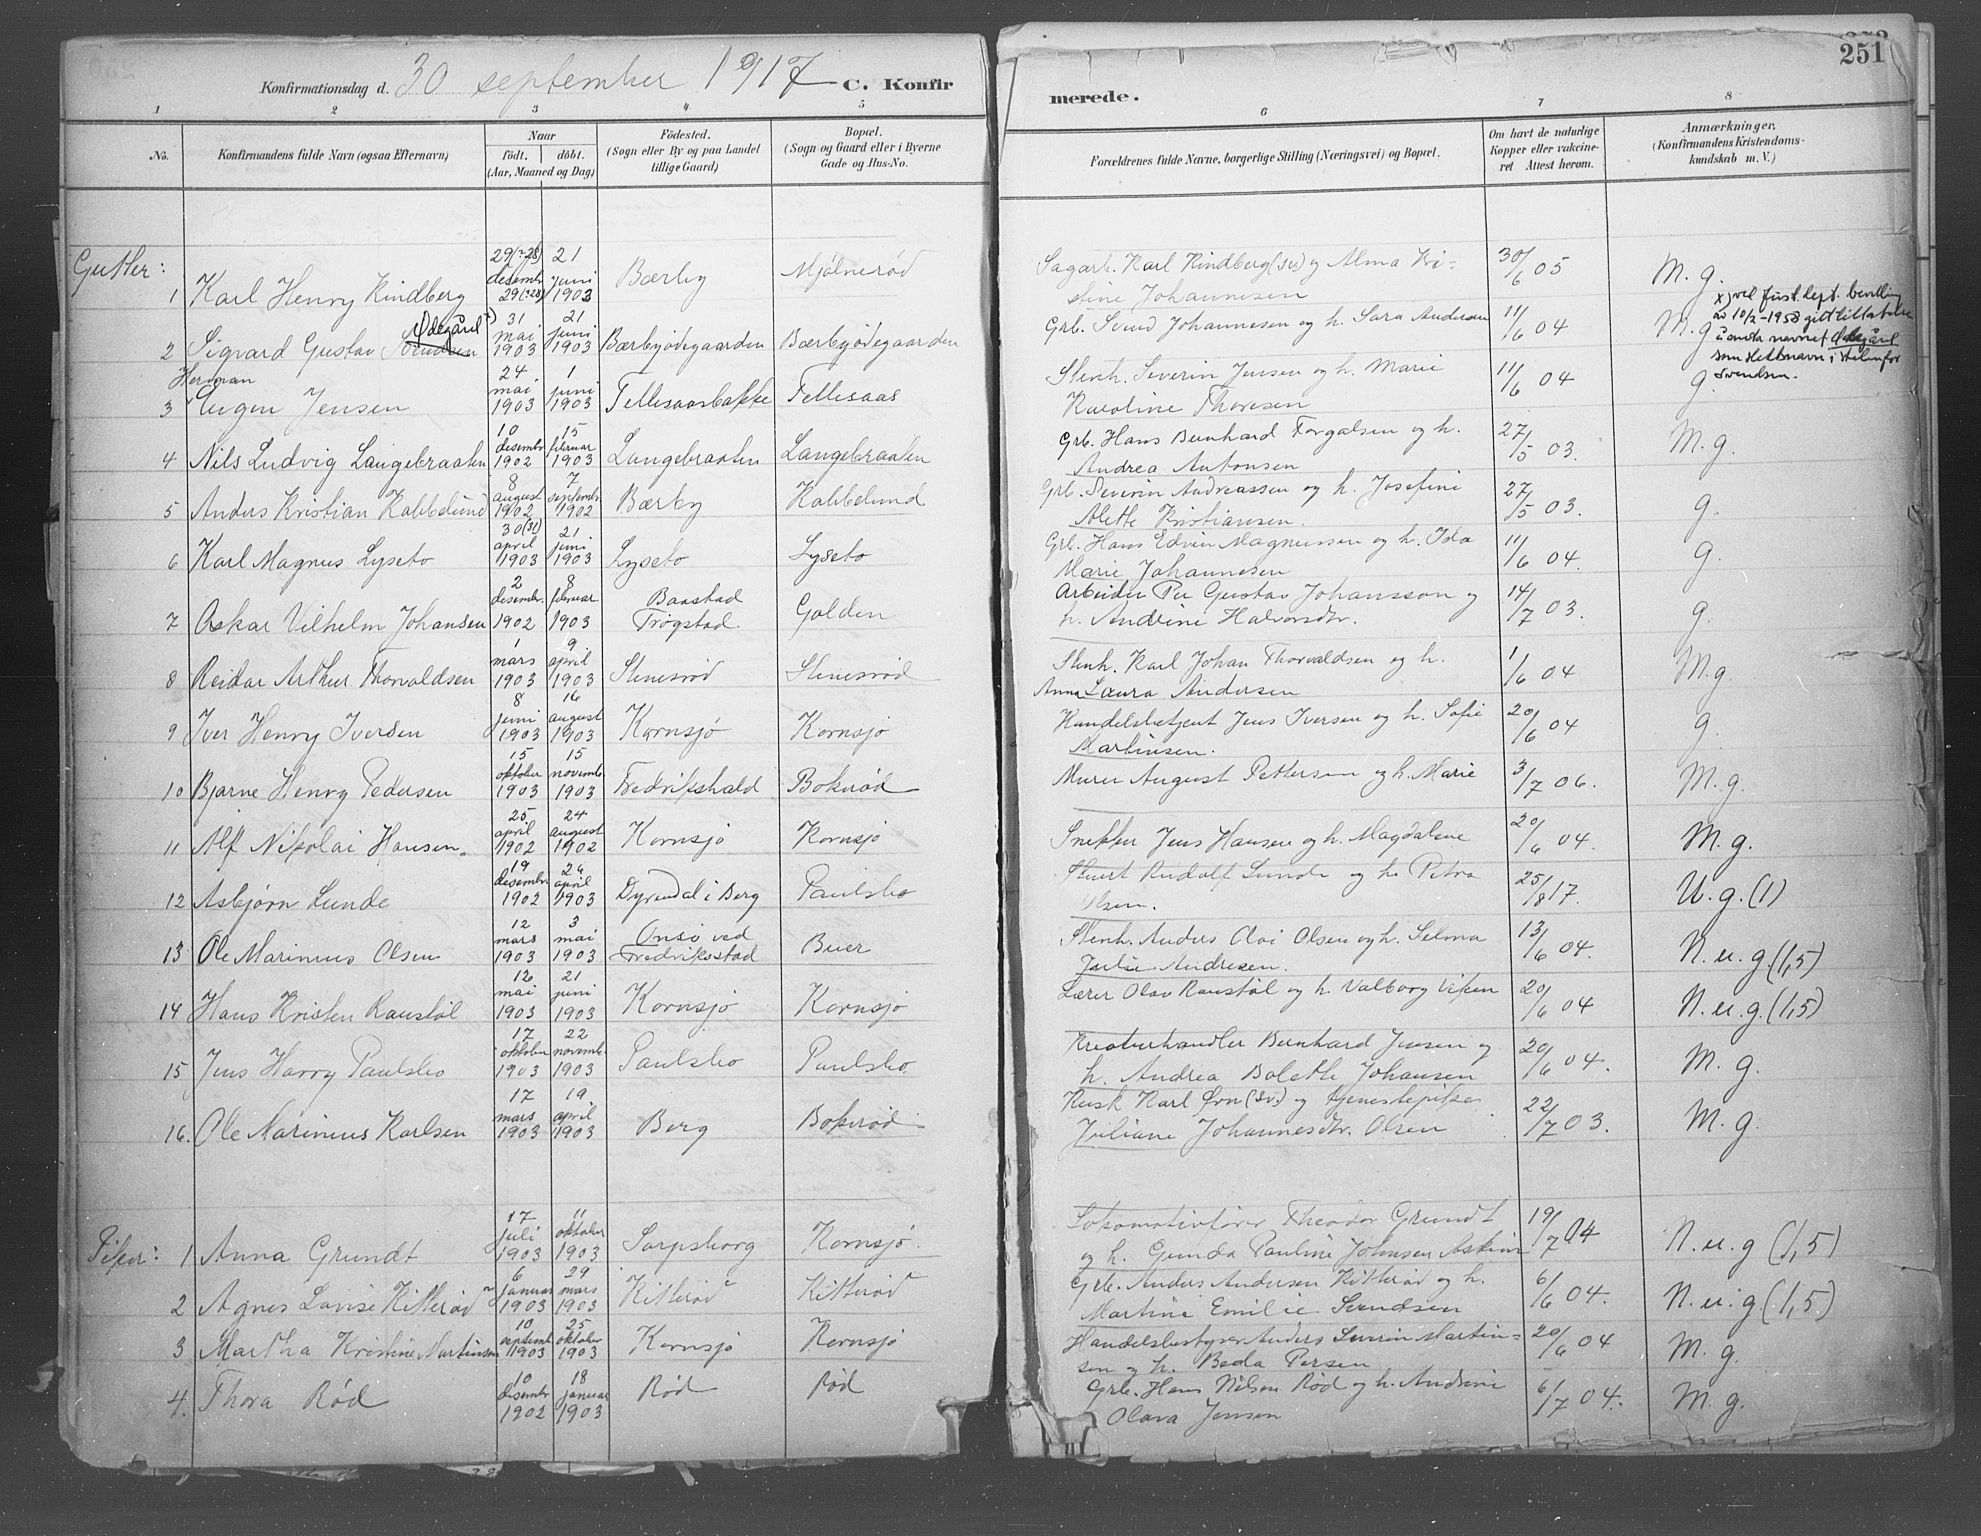 251
Konfirmationsdag d. 30 september 1917 C. Konfirmerede.
1 2 3 4 5 6 7 8
No.
Konfirmandens fulde Navn (ogsaa Efternavn)
Naar
født. døbt.
(Aar, Maaned og Dag)
Fødested.
(Sogn eller By og paa Landet tillige Gaard)
Bopæl.
(Sogn og Gaard eller i Byerne Gade og Hus-No.
Forældrenes fulde Navne, borgerlige Stilling (Næringsvei) og Bopæl.
Om havt de naturlige Kopper eller vakcineret Attest herom.
Anmærkninger.
(Konfirmandens Kristendomskundskab m. V.)
Gutter:
1 Karl Henry Rindberg 29 (?28) desembr 29 (?28) 21 juni 1903 Bærby Mjølnerød Sagarb. Karl Rindberg (sv.) og Alma Kristine Johannesen 30/6 05 M. g.
2 Sigvard Gustav Svendsen Ødegård x) 31 mai 1903 21 juni 1903 Bærbyødegaarden Bærbyødegaarden Grb. Svend Johannesen og h. Sara Andersen 11/6 04 M. g.
x) ved Just. dept. bevilling av 10/2-1958 gitt tillatelse å anta navnet Ødegård som slektsnavn i stedenfor Svendsen.
3 Herman Eugen Jensen 24 mai 1903 1 juni 1903 Tellesaasbakke Tellesaas Stenh. Severin Jensen og h. Marie Karoline Thoresen 11/6 04 g.
4 Nils Ludvig Langebraaten 10 desembr 1902 15 februar 1903 Langebraaten Langebraaten Grb. Hans Bernhard Torgalsen og h. Andrea Antonsen 27/5 03. M. g.
5 Anders Kristian Kabbelund 8 august 1902 7 septembr 1902 Bærby Kabbelund Grb. Severin Andreassen og h. Josefine Alette Kristiansen. 27/5 03. g.
6 Karl Magnus Lyseto 30 (31) april 1903 21 juni 1903 Lyseto Lyseto Grb. Hans Edvin Magnussen og h. Ida Marie Johannesen 11/6 04. g.
7 Oskar Vilhelm Johansen 2 desembr. 1902 8 februar 1903 Baastad Trøgstad. Golden Arbeider Per Gustav Johansson og h. Andrine Halvorsdtr. 14/7 03. g.
8 Reidar Arthur Thorvaldsen 1 mars 1903 9 april 1903 Stenerød Stenerød Stenh. Karl Johan Thorvaldsen og h. Anna Laura Andersen 1/6 04 M. g.
9 Iver Henry Iversen 8 juni 1903 16 august 1903 Kornsjø Kornsjø Handelsbetjent Jens Iversen og h. Sofie Martinsen. 20/6 04 g.
10 Bjarne Henry Pedersen 15 oktober 1903 15 novembr 1903 Fredrikshald Bokerød Murer August Pettersen og h. Marie 3/7 06. M. g.
11 Alf Nikolai Hansen. 25 april 1902 24 august 1902 Kornsjø Kornsjø Snekker Jens Hansen og h. Magdalene 20/6 04. M. g.
12 Asbjørn Lunde 19 desembr. 1902 26 april 1903 Dyrendal i Berg Paulsbo Rudolf Lunde og h. Petra Olsen. 25/8 17. M. g. (1)
13 Ole Marinius Olsen 12 mars 1903 3 mai 1903 Onsø ved Fredriksstad Buer Stenh. Anders Olai Olsen og h. Selma Julie Andresen. 13/6 04. N. u. g (1,5)
14 Hans Kristen Raustøl 12 mai 1903 21 juni 1903 Kornsjø Kornsjø Lærer Olav Raustøl og h. Valborg Viken 20/6 04 N. u. g. (1,5)
15 Jens Harry Paulsbo 17 oktober 1903 22 novembr. 1903 Paulsbo Paulsbo. Kreaturhandler Bernhard Jensen og h. Andrea Bolette Johansen 20/6 04. M. g.
16. Ole Marinius Karlsen 17 mars 1903 19 april 1903 Berg Bokerød Kusk Karl Örn (sv.) og tjenestepike Juliane Johannesdtr. Olsen 22/7 03. M. g.
Piker:
1 Anna Grundt 17 juli 1903 11 oktober 1903 Sarpsborg Kornsjø. Lokomotivfører Theodor Grundt og h. Gunda Pauline Johnsen Askim 19/7 04 N. u. g (1,5)
2 Agnes Lovise Kitterød 6 januar 1903 29 mars 1903 Kitterød Kitterød Grb. Anders Andersen Kitterød og h. Martine Emilie Svendsen 6/6 04. N. u. g (1,5)
3 Martha Kristine Martinsen 10 septemb 1903 25 oktober 1903 Kornsjø Kornsjø Handelsbestyrer Anders Severin Martinsen og h. Beda Persen 20/6 04 M. g.
4. Thora Rød 10 desembr 1902 18 januar 1903 Rød Rød Grb. Hans Nilsen Rød og h. Andrine Olava Jensen 6/7 04. M. g.